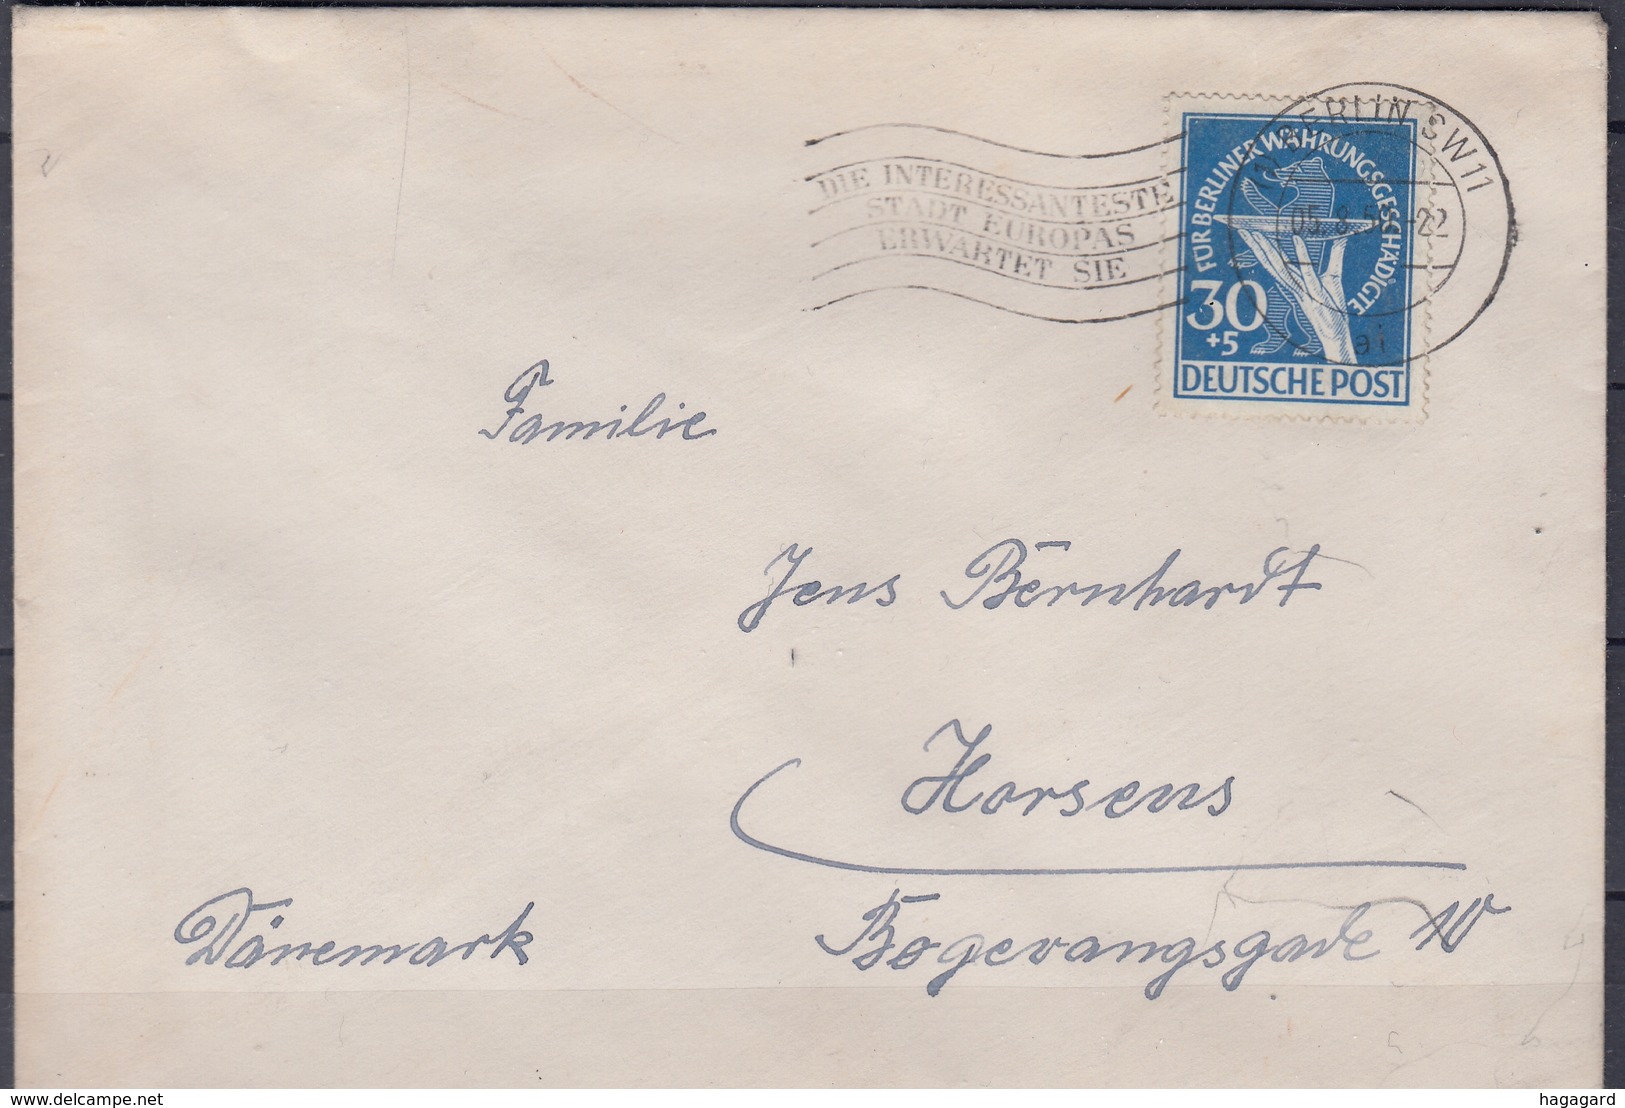 (1) BERLIN SW11
05.8.50.-22
ai
DIE INTERESSANTESTE
STADT EUROPAS
ERWARTET SIE
FÜR BERLINER WÄHRUNGSGESCHÄDIGTE
30
+5
DEUTSCHE POST
Familie
Jens Bernhardt
Horsens
Dänemark
Bøgevangsgade
delcampe.net
hagagard